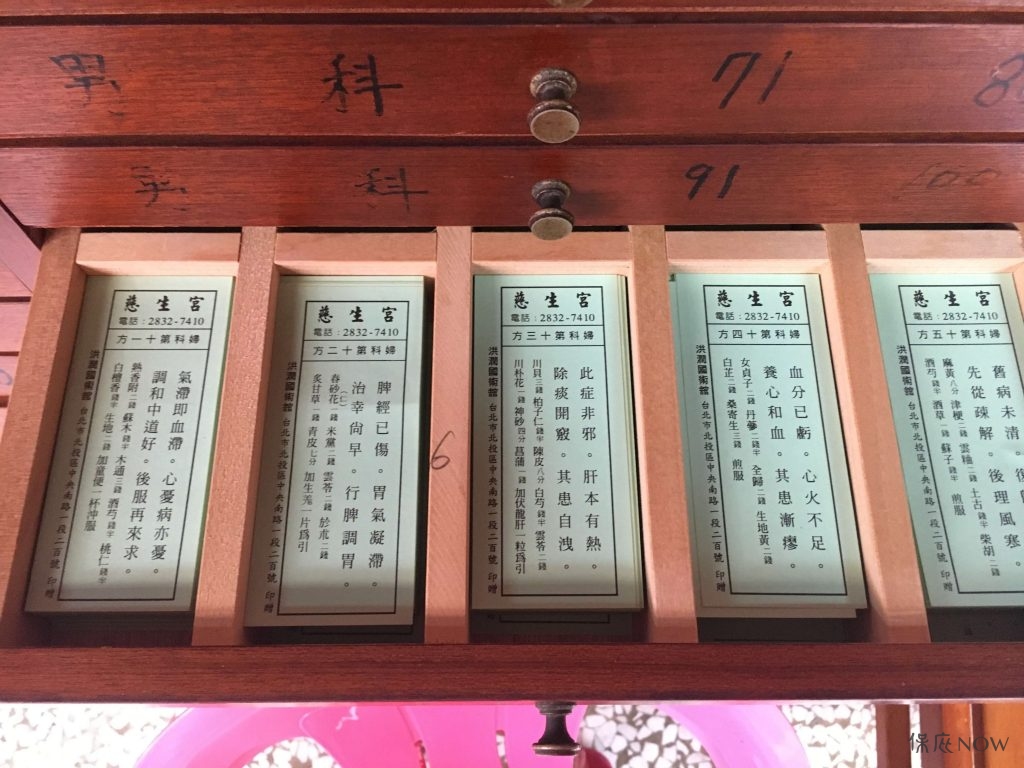 男 科 71 8
男 科 91 100
慈生宮
電話：2832-7410
婦科第十一方
氣滯即血滯。心憂病亦憂。
調和中道好。後服再來求。
熟香附二錢 蘇木錢半 木通三錢 酒芍錢半 桃仁錢半
白檀香錢半 生地二錢 加童便一杯沖服
洪潤國術館 台北市北投區中央南路一段二百號 印贈
慈生宮
電話：2832-7410
婦科第十二方
脾經已傷。胃氣凝滯。
治幸尚早。行脾調胃。
春砂花(七) 米黨二錢 雲苓二錢 於朮二錢
炙甘草一錢 青皮七分 加生羗一片為引
洪潤國術館 台北市北投區中央南路一段二百號 印贈
6
慈生宮
電話：2832-7410
婦科第十三方
此症非邪。肝本有熱。
除痰開竅。其患自洩。
川貝三錢 柏子仁錢半 陳皮八分 白芍錢半 雲苓二錢
川朴花一錢 神砂四分 菖蒲一錢 加伏龍肝一粒為引
洪潤國術館 台北市北投區中央南路一段二百號 印贈
慈生宮
電話：2832-7410
婦科第十四方
血分已虧。心火不足。
養心和血。其患漸瘳。
女貞子二錢 丹蔘二錢半 全歸二錢 生地黃二錢
白芷二錢 桑寄生三錢 煎服
洪潤國術館 台北市北投區中央南路一段二百號 印贈
慈生宮
電話：2832-7410
婦科第十五方
舊病未清。復
先從疎解。後理風寒。
麻黃八分 津梗二錢 雲苓二錢 土古錢半 柴胡二錢
酒芍錢半 酒草一錢 蘇子錢半 煎服
洪潤國術館 台北市北投區中央南路一段二百號 印贈
保庇NOW